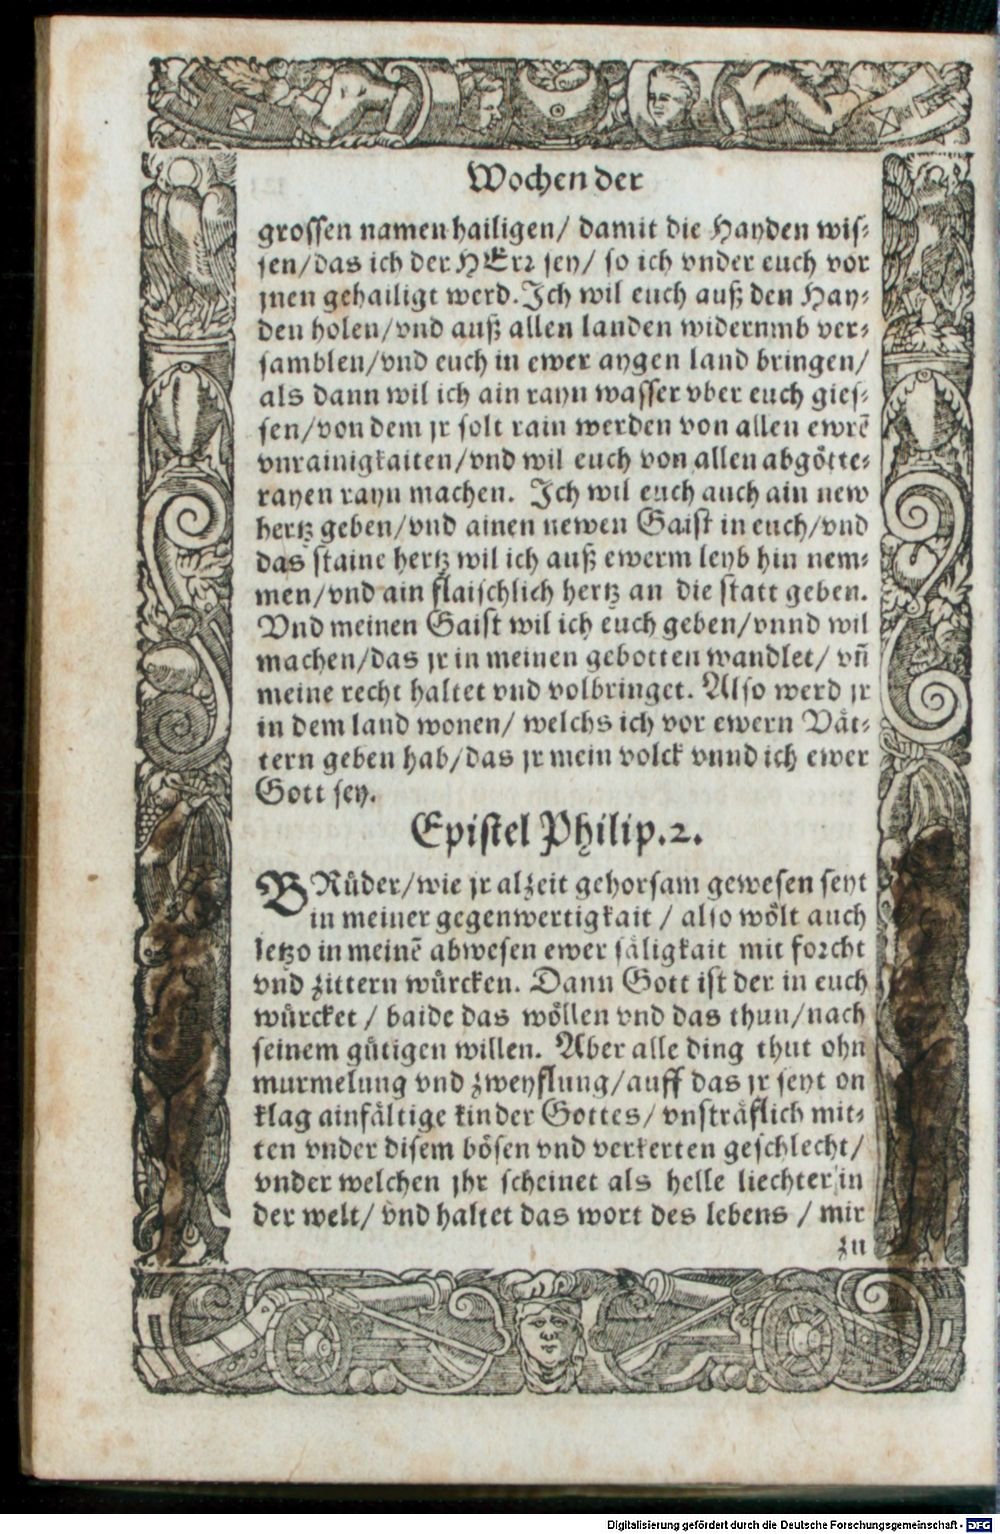 Wochen der
grossen namen hailigen/ damit die Hayden wis-
sen/das ich der HErr sey/ so ich vnder euch vor
jnen gehailigt werd. Ich wil euch auß den Hay-
den holen/vnd auß allen landen widerumb ver-
samblen/vnd euch in ewer aygen land bringen/
als dann wil ich ain rayn wasser vber euch gies-
sen/von dem jr solt rain werden von allen ewrē
vnrainigkaiten/vnd wil euch von allen abgötte-
rayen rayn machen. Ich wil euch auch ain new
hertz geben/vnd ainen newen Gaist in euch/vnd
das staine hertz wil ich auß ewerm leyb hin nem-
men/vnd ain flaischlich hertz an die statt geben.
Vnd meinen Gaist wil ich euch geben/vnnd wil
machen/das jr in meinen gebotten wandlet/ vñ
meine recht haltet vnd volbringet. Also werd jr
in dem land wonen/ welchs ich vor ewern Våt-
tern geben hab/das jr mein volck vnnd ich ewer
Gott sey.
Epistel Philip.2.
BRüder/wie jr alzeit gehorsam gewesen seyt
in meiner gegenwertigkait / also wölt auch
Ietzo in meinē abwesen ewer såligkait mit forcht
vnd zittern würcken. Dann Gott ist der in euch
würcket / baide das wöllen vnd das thun/nach
seinem gütigen willen. Aber alle ding thut ohn
murmelung vnd zweyflung/auff das jr seyt on
klag ainfältige kinder Gottes/ vnsträflich mit-
ten vnder disem bösen vnd verkerten geschlecht/
vnder welchen jhr scheinet als helle liechter in
der welt/ vnd haltet das wort des lebens / mir
zu
Digitalisierung gefördert durch die Deutsche Forschungsgemeinschaft - DFG